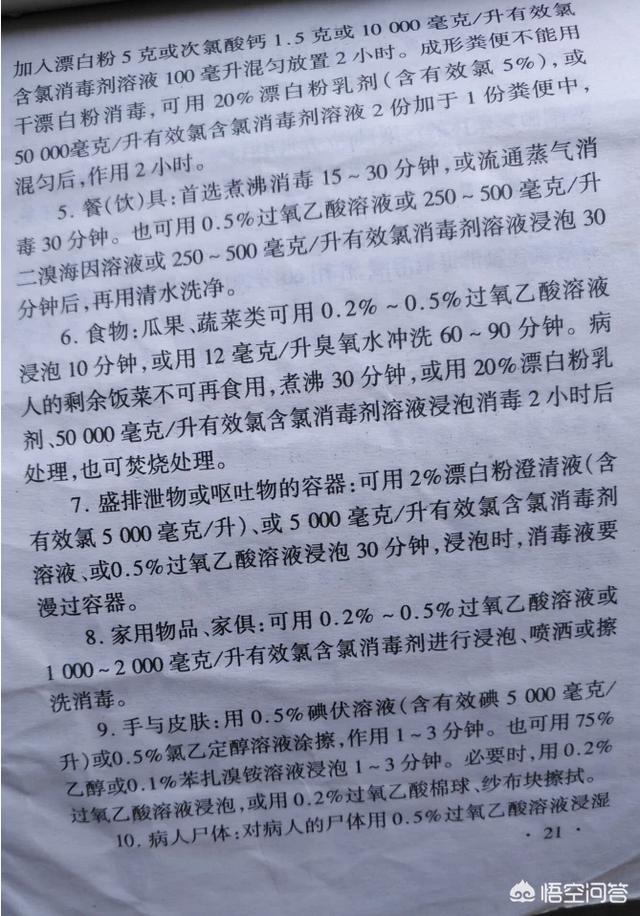 加入漂白粉5克或次氯酸钙1.5克或10 000毫克/升有效氯
含氯消毒剂溶液100毫升混匀放置2小时。成形粪便不能用
干漂白粉消毒,可用20%漂白粉乳剂(含有效氯5%),或
50 000毫克/升有效氯含氯消毒剂溶液2份加于1份粪便中,
混匀后,作用2小时。
5. 餐(饮)具:首选煮沸消毒15~30分钟,或流通蒸气消
毒30分钟。也可用0.5%过氧乙酸溶液或250~500毫克/升
二溴海因溶液或250~500毫克/升有效氯消毒剂溶液浸泡30
分钟后,再用清水洗净。
6. 食物:瓜果、蔬菜类可用0.2%~0.5%过氧乙酸溶液
浸泡10分钟,或用12毫克/升臭氧水冲洗60~90分钟。病
人的剩余饭菜不可再食用,煮沸30分钟,或用20%漂白粉乳
剂、50 000毫克/升有效氯含氯消毒剂溶液浸泡消毒2小时后
处理,也可焚烧处理。
7. 盛排泄物或呕吐物的容器:可用2%漂白粉澄清液(含
有效氯5 000毫克/升)、或5 000毫克/升有效氯含氯消毒剂
溶液、或0.5%过氧乙酸溶液浸泡30分钟,浸泡时,消毒液要
漫过容器。
8. 家用物品、家俱:可用0.2%~0.5%过氧乙酸溶液或
1 000~2 000毫克/升有效氯含氯消毒剂进行浸泡、喷洒或擦
洗消毒。
9. 手与皮肤:用0.5%碘伏溶液(含有效碘5 000毫克/
升)或0.5%氯乙定醇溶液涂擦,作用1~3分钟。也可用75%
乙醇或0.1%苯扎溴铵溶液浸泡1~3分钟。必要时,用0.2%
过氧乙酸溶液浸泡,或用0.2%过氧乙酸棉球、纱布块擦拭。
10. 病人尸体:对病人的尸体用0.5%过氧乙酸溶液浸湿
· 21 ·
悟空问答